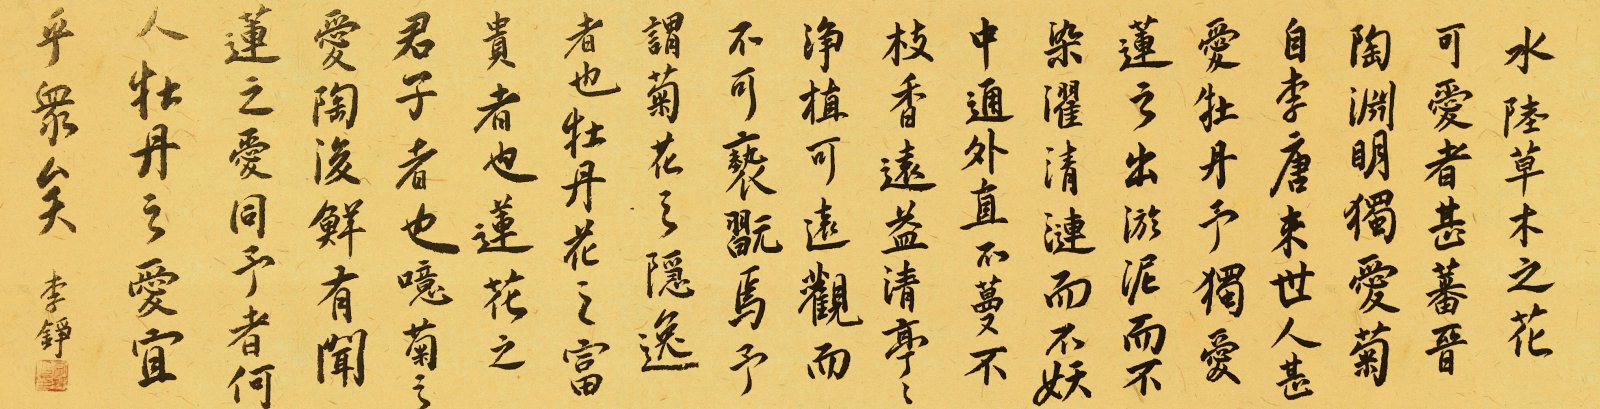 水陸草木之花
可愛者甚蕃晉
陶淵明獨愛菊
自李唐來世人甚
愛牡丹予獨愛
蓮之出淤泥而不
染濯清漣而不妖
中通外直不蔓不
枝香遠益清亭亭
淨植可遠觀而
不可褻翫焉予
謂菊花之隱逸
者也牡丹花之富
貴者也蓮花之
君子者也噫菊之
愛陶後鮮有聞
蓮之愛同予者何
人牡丹之愛宜
乎眾矣
李錚